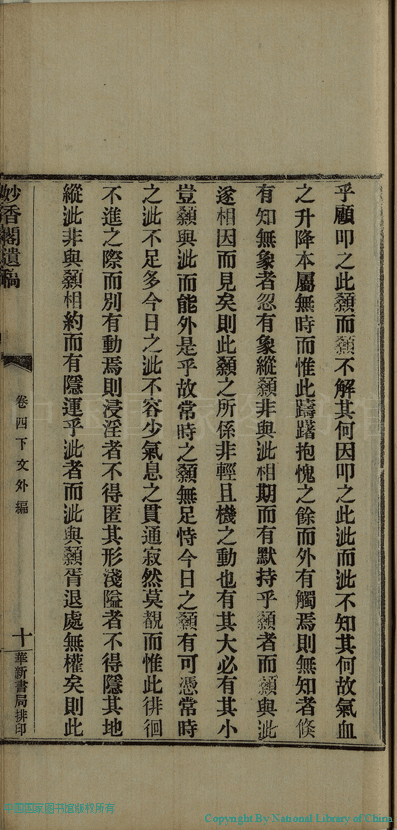 乎顧叩之此顙而顙不解其何因叩之此泚而泚不知其何故氣血
之升降本屬無時而惟此躊躇抱愧之餘而外有觸焉則無知者倏
有知無象者忽有象縱顙非與泚相期而有默持乎顙者而顙與泚
遂相因而見矣則此顙之所係非輕且機之動也有其大必有其小
豈顙與泚而能外是乎故常時之顙無足恃今日之顙有可憑常時
之泚不足多今日之泚不容少氣息之貫通寂然莫覩而惟此徘徊
不進之際而別有動焉則浸淫者不得匿其形淺隘者不得隱其地
縱泚非與顙相約而有隱運乎泚者而泚與顙胥退處無權矣則此
妙香閣遺稿
卷四下文外編
十
華新書局排印
中国国家图书馆版权所有
Copyright By National Library of China